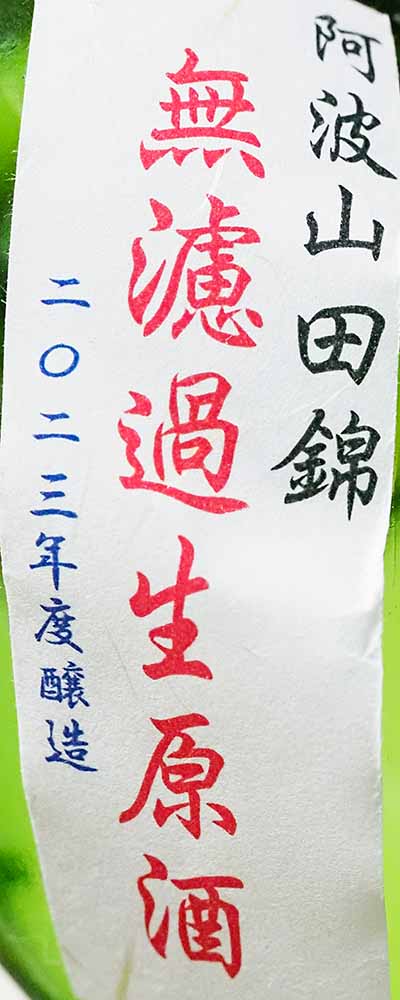 阿波山田錦
無濾過生原酒
二〇二三年度醸造